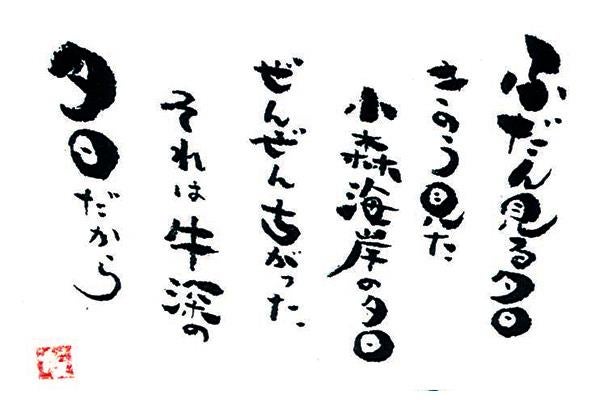 ふだん見る夕日
きのう見た
小森海岸の夕日
ぜんぜんちがった、
それは牛深の
夕日だから